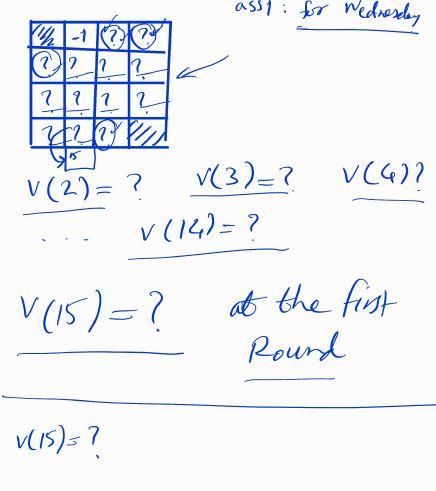 ass1 : for Wednesday
-1 ? ?
? ? ? ?
? ? ? ?
? ? ?
15
V(2) = ? V(3) = ? V(4) ?
.... V(14) = ?
V(15) = ? at the first
Round
V(15) = ?